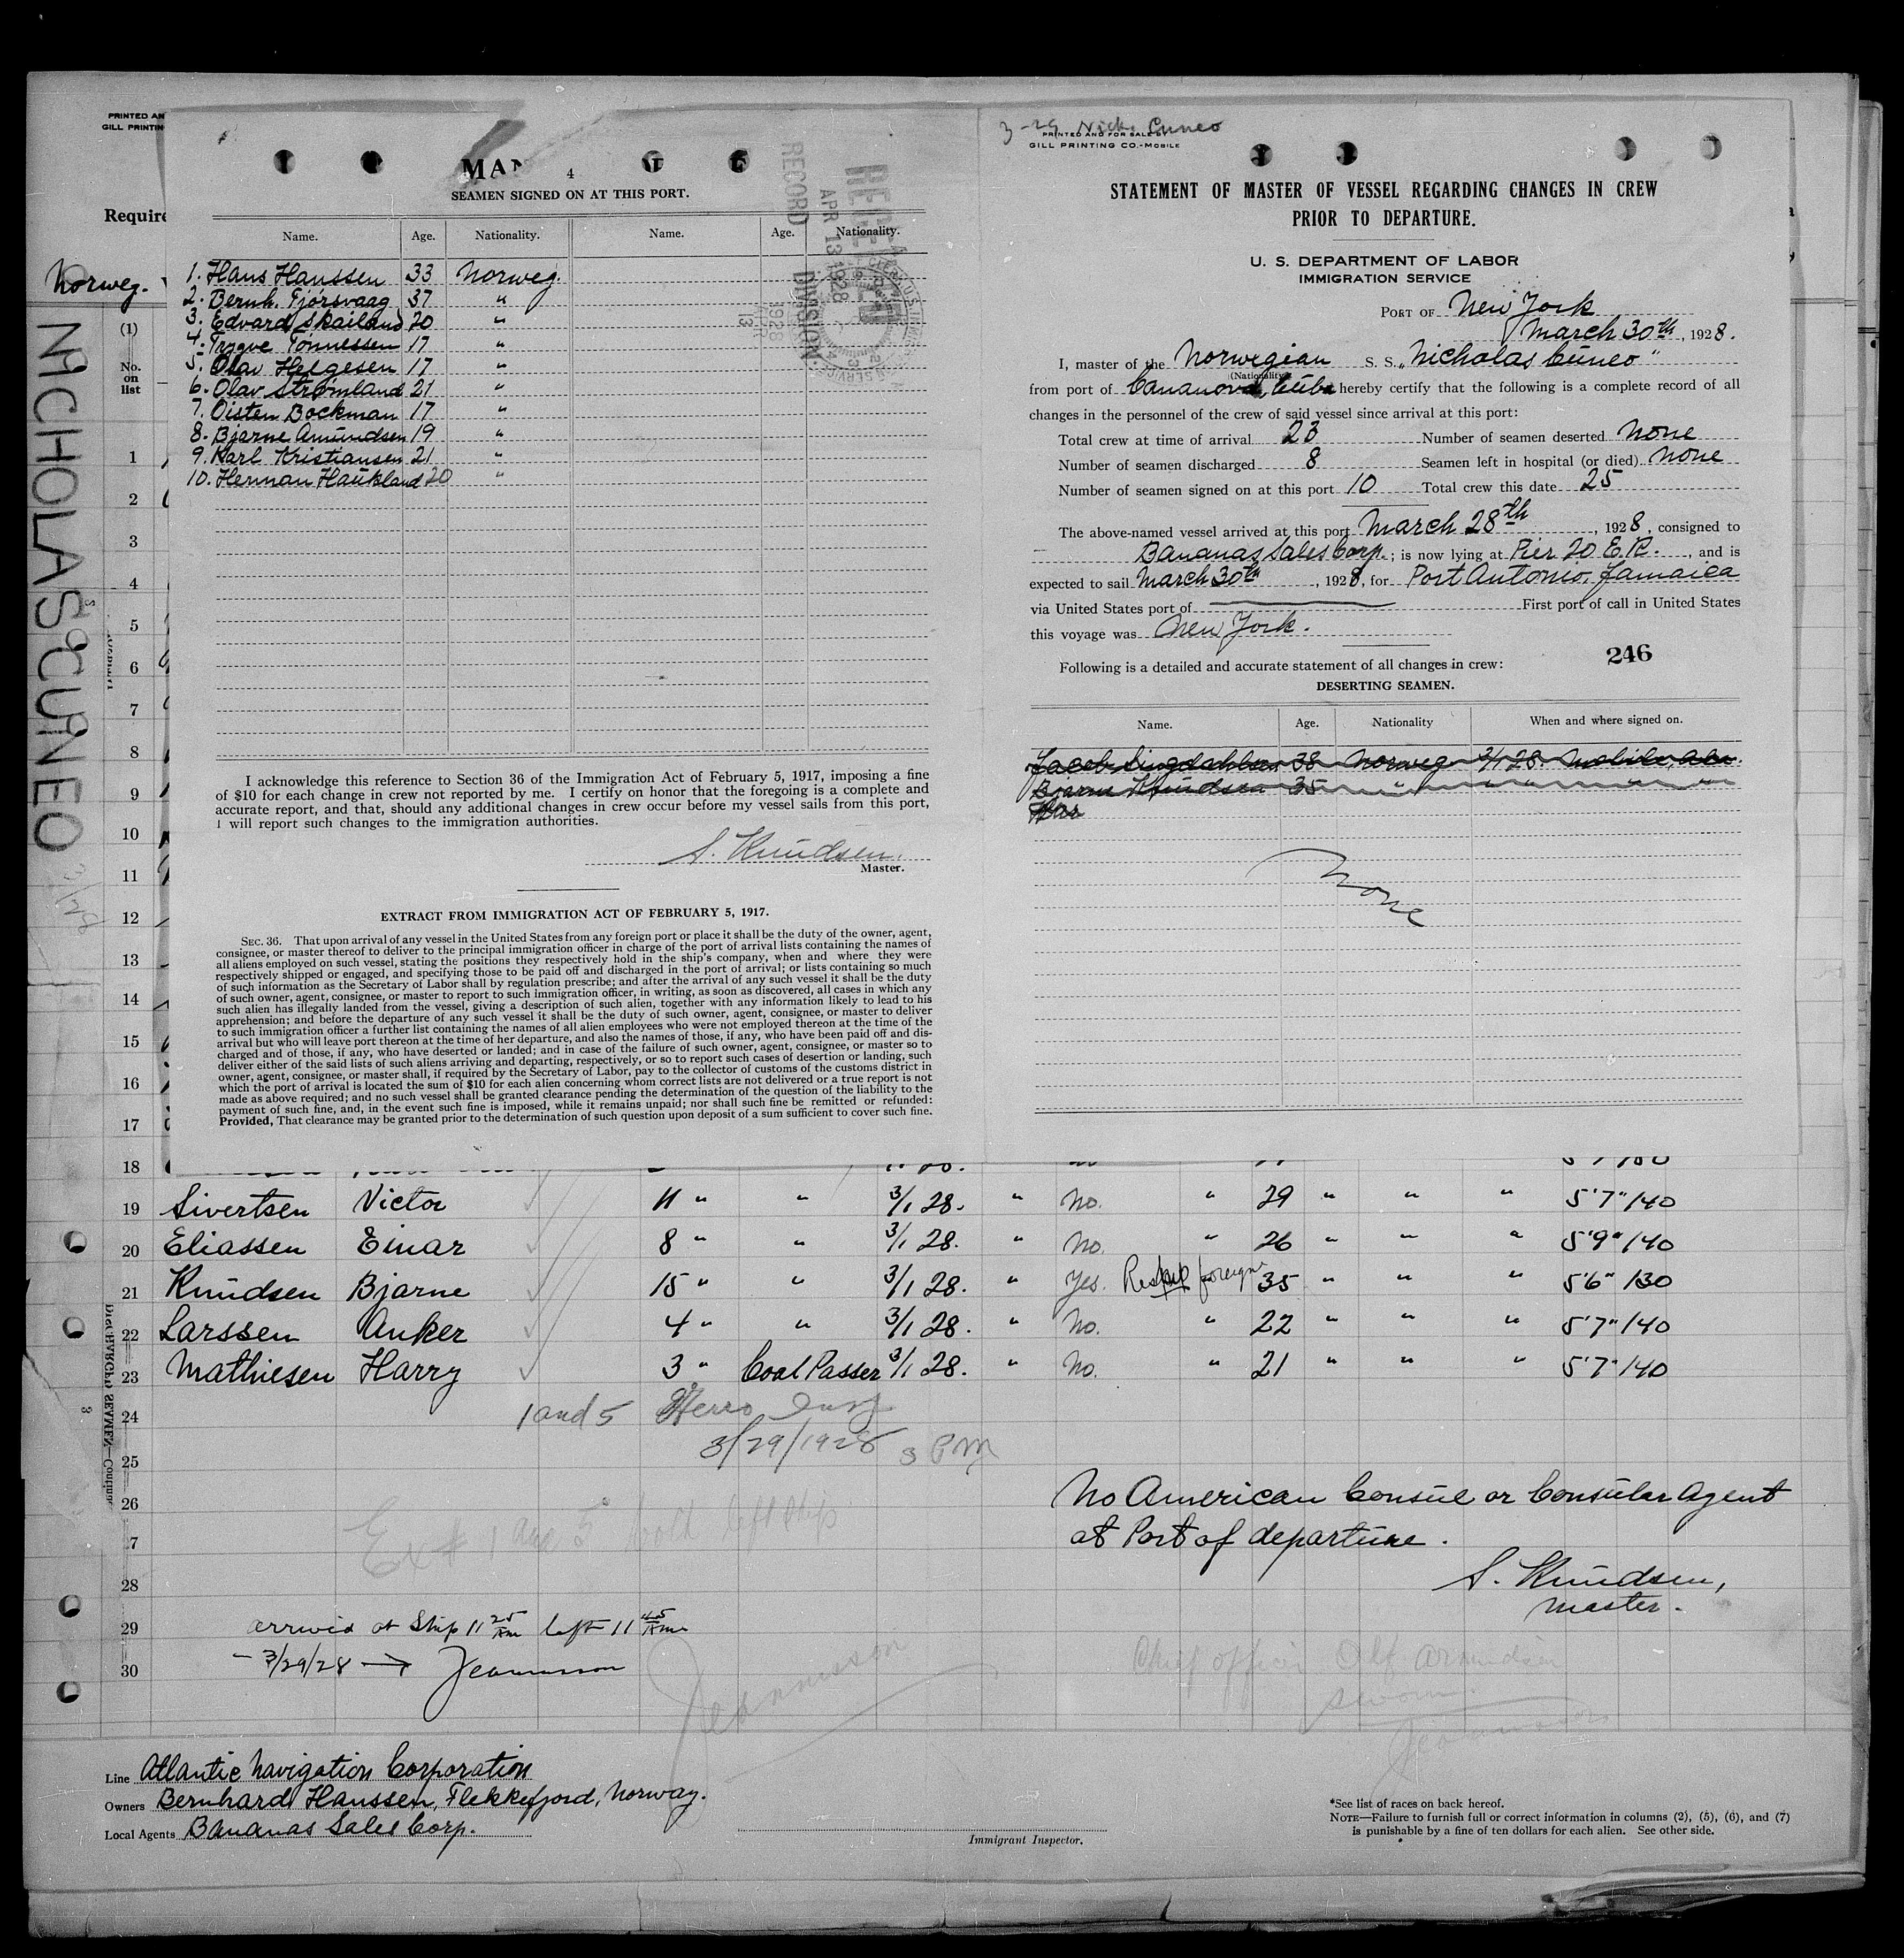 PRINTED AN
GILL PRINTIN
Require
Norweg.
(1)
No.
on
list
NICHOLAS CUNEO
3/28
4
SEAMEN SIGNED ON AT THIS PORT.
Name. Age. Nationality. Name. Age. Nationality.
1. Hans Hanssen 33 Norweg.
2. Bernh. Fjørsvaag 37 "
3. Edvard Skailand 20 "
4. Trygve Tonnessen 17 "
5. Olav Helgesen 17 "
6. Olav Strømland 21 "
7. Oisten Bockman 17 "
8. Bjarne Amundsen 19 "
9. Karl Kristiansen 21 "
10. Herman Haukland 20 "
RECORD
APR 13 1928
DIVISION
I acknowledge this reference to Section 36 of the Immigration Act of February 5, 1917, imposing a fine
of $10 for each change in crew not reported by me. I certify on honor that the foregoing is a complete and
accurate report, and that, should any additional changes in crew occur before my vessel sails from this port,
I will report such changes to the immigration authorities.
S. Knudsen.
Master.
EXTRACT FROM IMMIGRATION ACT OF FEBRUARY 5, 1917.
SEC. 36. That upon arrival of any vessel in the United States from any foreign port or place it shall be the duty of the owner, agent,
consignee, or master thereof to deliver to the principal immigration officer in charge of the port of arrival lists containing the names of
all aliens employed on such vessel, stating the positions they respectively hold in the ship's company, when and where they were
respectively shipped or engaged, and specifying those to be paid off and discharged in the port of arrival; or lists containing so much
of such information as the Secretary of Labor shall by regulation prescribe; and after the arrival of any such vessel it shall be the duty
of such owner, agent, consignee, or master to report to such immigration officer, in writing, as soon as discovered, all cases in which any
such alien has illegally landed from the vessel, giving a description of such alien, together with any information likely to lead to his
apprehension; and before the departure of any such vessel it shall be the duty of such owner, agent, consignee, or master to deliver
to such immigration officer a further list containing the names of all alien employees who were not employed thereon at the time of the
arrival but who will leave port thereon at the time of her departure, and also the names of those, if any, who have been paid off and dis-
charged and of those, if any, who have deserted or landed; and in case of the failure of such owner, agent, consignee, or master so to
deliver either of the said lists of such aliens arriving and departing, respectively, or so to report such cases of desertion or landing, such
owner, agent, consignee, or master shall, if required by the Secretary of Labor, pay to the collector of customs of the customs district in
which the port of arrival is located the sum of $10 for each alien concerning whom correct lists are not delivered or a true report is not
made as above required; and no such vessel shall be granted clearance pending the determination of the question of the liability to the
payment of such fine, and, in the event such fine is imposed, while it remains unpaid; nor shall such fine be remitted or refunded:
Provided, That clearance may be granted prior to the determination of such question upon deposit of a sum sufficient to cover such fine.
3-29 Nick Cuneo
PRINTED AND FOR SALE BY
GILL PRINTING CO.-MOBILE
STATEMENT OF MASTER OF VESSEL REGARDING CHANGES IN CREW
PRIOR TO DEPARTURE.
U. S. DEPARTMENT OF LABOR
IMMIGRATION SERVICE
PORT OF New York
March 30th, 1928.
I, master of the Norwegian S. S. "Nicholas Cuneo"
(Nationality)
from port of Cananova, Cuba hereby certify that the following is a complete record of all
changes in the personnel of the crew of said vessel since arrival at this port:
Total crew at time of arrival 23 Number of seamen deserted None
Number of seamen discharged 8 Seamen left in hospital (or died) None
Number of seamen signed on at this port 10 Total crew this date 25
The above-named vessel arrived at this port March 28th, 1928, consigned to
Bananas Sales Corp.; is now lying at Pier 20 E.R., and is
expected to sail March 30th, 1928, for Port Antonio, Jamaica
via United States port of First port of call in United States
this voyage was New York.
Following is a detailed and accurate statement of all changes in crew:
246
DESERTING SEAMEN.
Name. Age. Nationality When and where signed on.
Jacob 38 Norweg 3/1 28. Mobile, Ala.
Bjarne Knudsen 35 " " " "
None
1
2
3
4
5
6
7
8
9
10
11
12
13
14
15
16
17
18
19 Sivertsen Victor 11 " " 3/1 28. " No. " 29 " " " 5'7" 140
20 Eliassen Einar 8 " " 3/1 28. " No. " 26 " " " 5'9" 140
21 Knudsen Bjarne 15 " " 3/1 28. " Yes. Reship foreign 35 " " " 5'6" 130
22 Larssen Anker 4 " " 3/1 28. " No. " 22 " " " 5'7" 140
23 Mathiesen Harry 3 " Coal Passer 3/1 28. " No. " 21 " " " 5'7" 140
24 1 and 5
3/29/1928 3 PM
25
26
No American Consul or Consular Agent
at Port of departure.
Ex # 1 and 5 both left ship
7
28
S. Knudsen,
Master.
29 arrived at Ship 11 25 am left 11 45 am
30 3/29/28
Chief officer Alf Amundsen
sworn.
Line Atlantic Navigation Corporation
Owners Bernhard Hanssen, Flekkefjord, Norway.
Local Agents Bananas Sales Corp.
Immigrant Inspector.
*See list of races on back hereof.
NOTE—Failure to furnish full or correct information in columns (2), (5), (6), and (7)
is punishable by a fine of ten dollars for each alien. See other side.